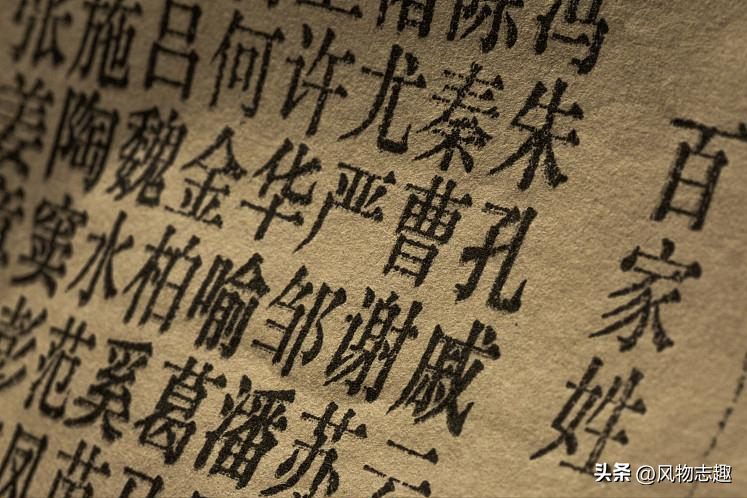 百家姓
冯陈褚卫
朱秦尤许何吕施张
孔曹严华金魏陶姜
戚谢邹喻柏水窦章
云苏潘葛奚范彭
马苗凤
头条 @风物志趣